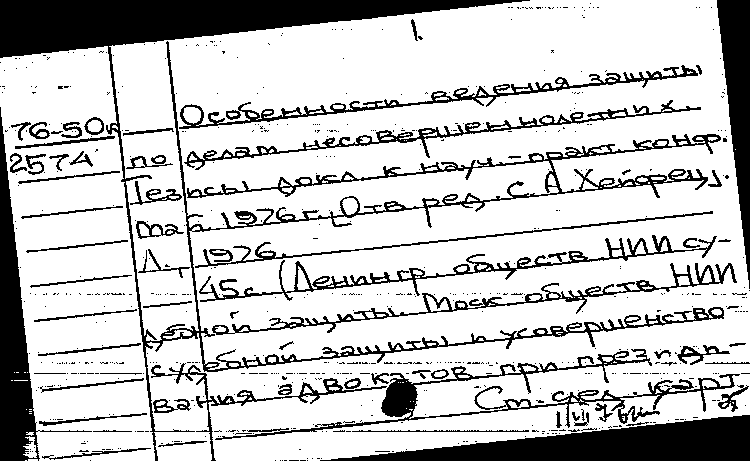 1.
76-50к
2574
Особенности ведения защиты
по делам несовершеннолетних.
Тезисы докл. к науч.-практ. конф.
май 1976 г. [Отв. ред. С. А. Хейфец].
Л., 1976.
45 с. (Ленингр. обществ. НИИ су-
дебной защиты. Моск. обществ. НИИ
судебной защиты и усовершенство-
вания адвокатов при през.
См. след. карт.